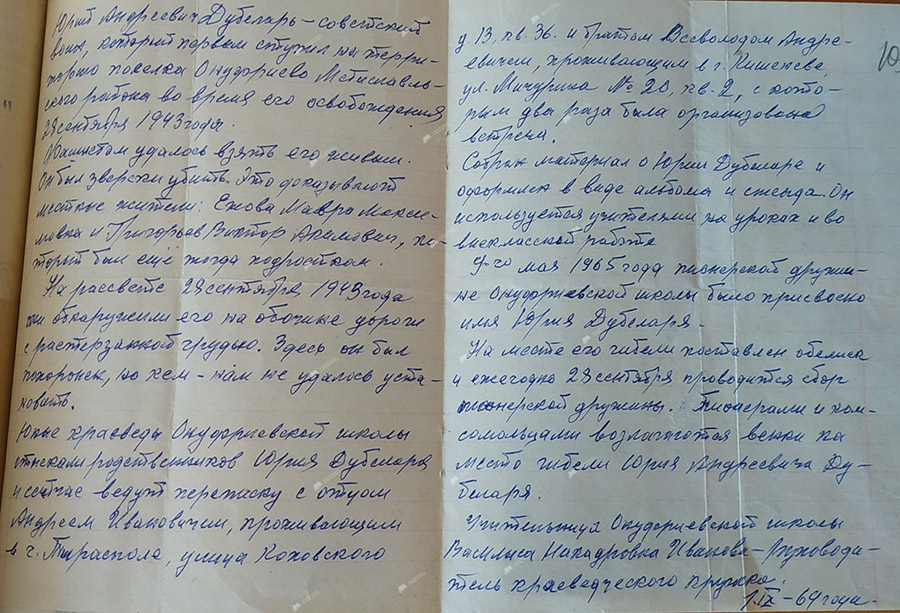 Юрий Андреевич Дубеларь – советский
воин, который первым ступил на терри-
торию поселка Онуфриево Мстиславль-
ского района во время его освобождения
28 сентября 1943 года.
Фашистам удалось взять его живым.
Он был зверски убит. Это доказывают
местные жители: Ежова Мавра Макси-
мовна и Григорьев Виктор Акимович, ко-
торый был ещё тогда подростком.
На рассвете 28 сентября 1943 года
они обнаружили его на обочине дороги
с растерзанной грудью. Здесь он был
похоронен, но кем – нам не удалось уста-
новить.
Юные краеведы Онуфриевской школы
отыскали родственников Юрия Дубеларя
и сейчас ведут переписку с отцом
Андреем Ивановичем, проживающим
в г. Тирасполе, улица Коховского
д. 13, кв. 36. и братом Всеволодом Андре-
евичем, проживающим в г. Кишеневе,
ул. Мичурина № 20, кв. 2, с кото-
рым два раза была организована
встреча.
Собран материал о Юрии Дубеларе и
оформлен в виде альбома и стенда. Он
используется учителями на уроках и во
внеклассной работе
9-го мая 1965 года пионерской дружи-
не Онуфриевской школы было присвоено
имя Юрия Дубеларя.
На месте его гибели поставлен обелиск
и ежегодно 28 сентября проводится сбор
пионерской дружины. Пионерами и ком-
сомольцами возлагаются венки на
место гибели Юрия Андреевича Ду-
беларя.
Учительница Онуфриевской школы
Василиса Иванова – руководи-
тель краеведческого кружка.
1.IX – 69 года.